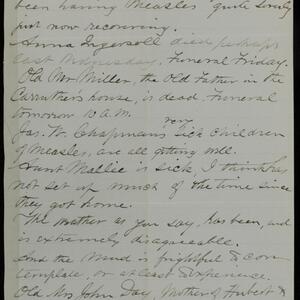 been having Measles quite sorely
just now recovering.
Anna Ingersoll died perhaps
last Wednesday, Funeral Friday.
Old Mr Miller, the Old Father in the
Carruther's house, is dead. Funeral
tomorrow 10 A.M.
Jas. W. Chapman's very sick children
of Measles, are all getting well.
Aunt Mallie is sick, I think has
not set up much of the time since
they got home.
The weather as you say, has been, and
is extremely disagreeable.
And the Mud is frightful to con
template, or at least experience.
Old Mrs John Day, Mother of Hubert &